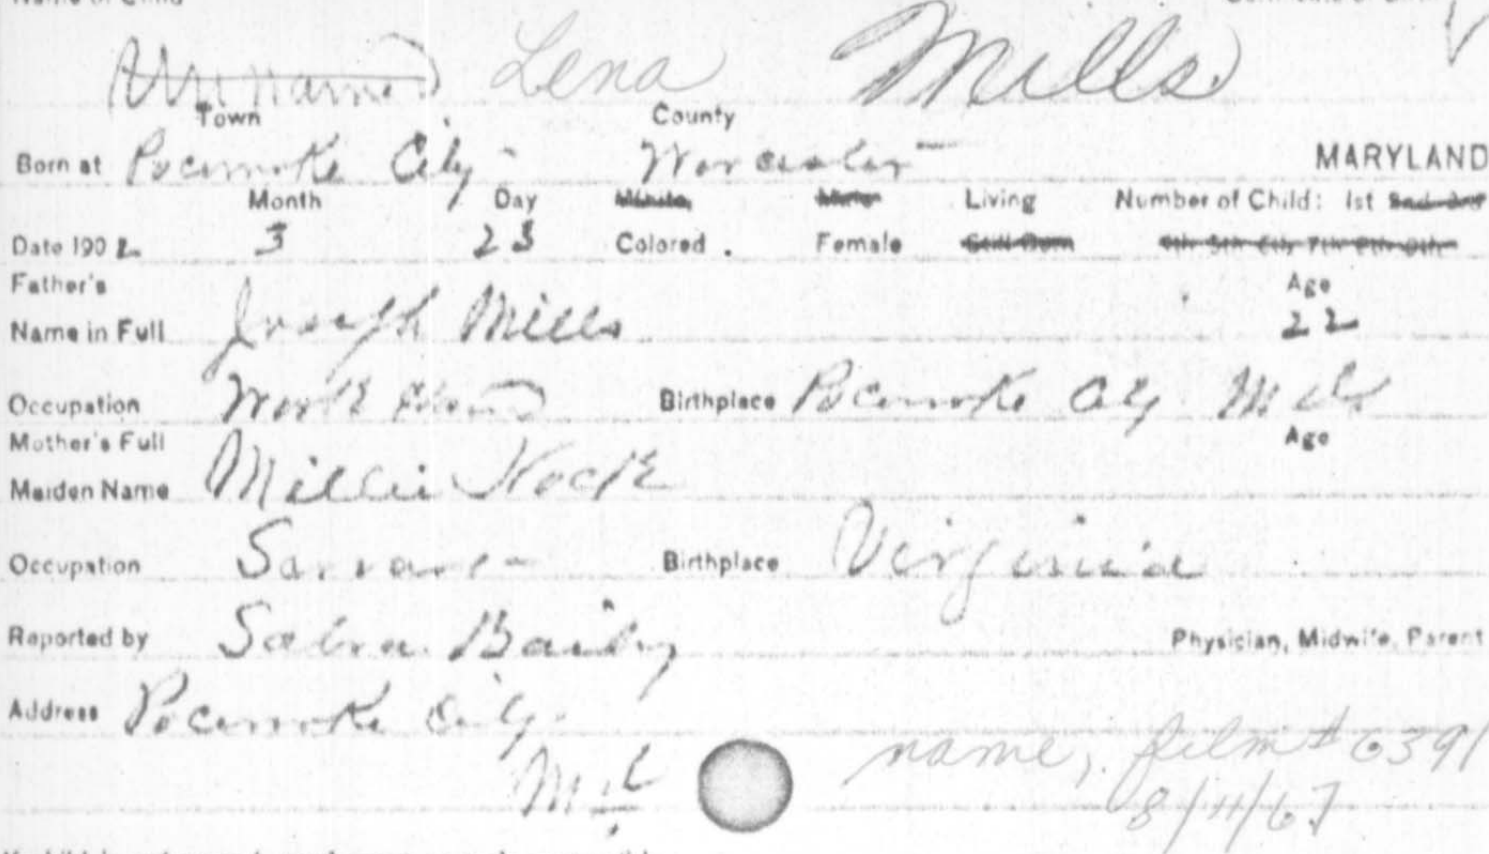 Name of Child
Unnamed Lena Mills
Town County
Born at Pocomoke City Worcester MARYLAND
Month Day White, Male Living Number of Child: 1st 2nd 3rd
Date 1902 3 23 Colored. Female Still Born 4th 5th 6th 7th 8th 9th
Father's Age
Name in Full Joseph Mills 22
Occupation Work Birthplace Pocomoke City Md.
Mother's Full Age
Maiden Name Millie Nock
Occupation Sarvant Birthplace Virginia
Reported by Sabra Baily Physician, Midwife, Parent
Address Pocomoke City
Md
name, film # 6391
8/11/67